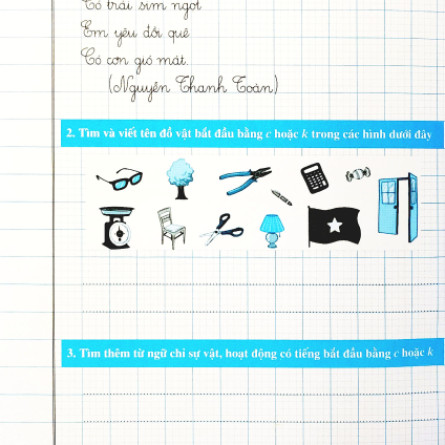 Có trái sim ngọt
Em yêu đồi quê
Có cơn gió mát.
(Nguyễn Thanh Toàn)
2. Tìm và viết tên đồ vật bắt đầu bằng c hoặc k trong các hình dưới đây
3. Tìm thêm từ ngữ chỉ sự vật, hoạt động có tiếng bắt đầu bằng c hoặc k